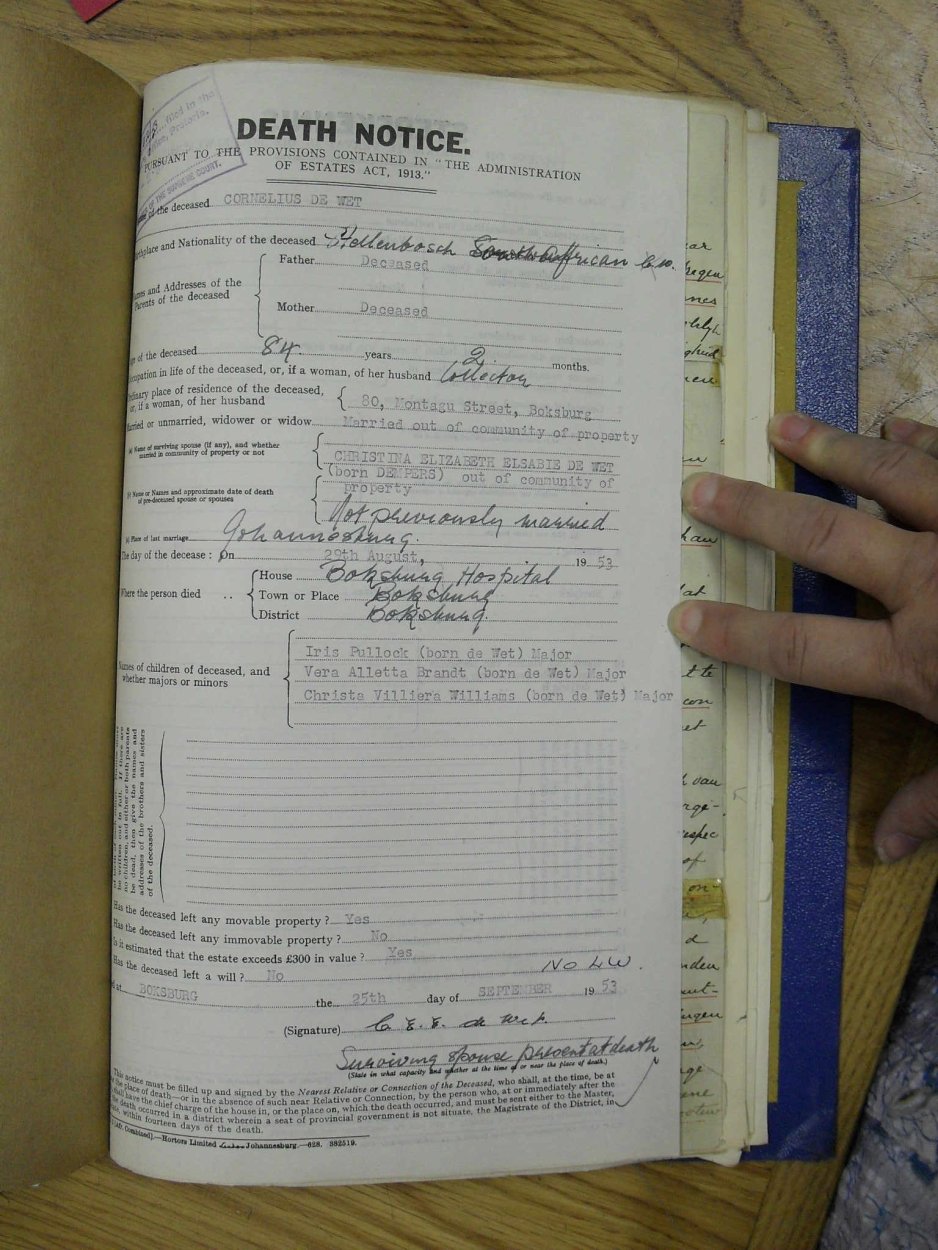 filed in the
Pretoria.
OF THE SUPREME COURT.
DEATH NOTICE.
PURSUANT TO THE PROVISIONS CONTAINED IN "THE ADMINISTRATION
OF ESTATES ACT, 1913."
the deceased CORNELIUS DE WET
Birthplace and Nationality of the deceased Stellenbosch South African
Names and Addresses of the
Parents of the deceased
Father Deceased
Mother Deceased
of the deceased 84 years 2 months.
Occupation in life of the deceased, or, if a woman, of her husband Collector
Ordinary place of residence of the deceased,
or, if a woman, of her husband
80, Montagu Street, Boksburg
Married or unmarried, widower or widow Married out of community of property
(a) Name of surviving spouse (if any), and whether
married in community of property or not
CHRISTINA ELIZABETH ELSABIE DE WET
(born DEMPERS) out of community of
property
(b) Name or Names and approximate date of death
of pre-deceased spouse or spouses
Not previously married
(c) Place of last marriage Johannesburg.
The day of the decease: On 29th August, 1953
Where the person died ..
House Boksburg Hospital
Town or Place Boksburg
District Boksburg.
Names of children of deceased, and
whether majors or minors
Iris Pullock (born de Wet) Major
Vera Alletta Brandt (born de Wet) Major
Christa Villiera Williams (born de Wet) Major
be written out in full. If there are
no children, and either or both parents
be dead, then give the names and
addresses of the brothers and sisters
of the deceased.
Has the deceased left any movable property? Yes
Has the deceased left any immovable property? No
Is it estimated that the estate exceeds £300 in value? Yes
Has the deceased left a will? No
No LW.
at BOKSBURG the 25th day of SEPTEMBER 1953
(Signature) C. E. E. de Wet.
Surviving spouse present at death
(State in what capacity and whether at the time of or near the place of death)
This notice must be filled up and signed by the Nearest Relative or Connection of the Deceased, who shall, at the time, be at
the place of death—or in the absence of such near Relative or Connection, by the person who, at or immediately after the
shall have the chief charge of the house in, or the place on, which the death occurred, and must be sent either to the Master,
the death occurred in a district wherein a seat of provincial government is not situate, the Magistrate of the District, in
within fourteen days of the death.
Combined).—Hortors Limited Johannesburg—628. 882519.